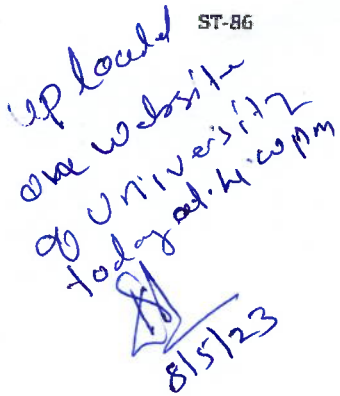 ST-86
uploaded
one website
of University
today at. 4:00 pm
8/5/23